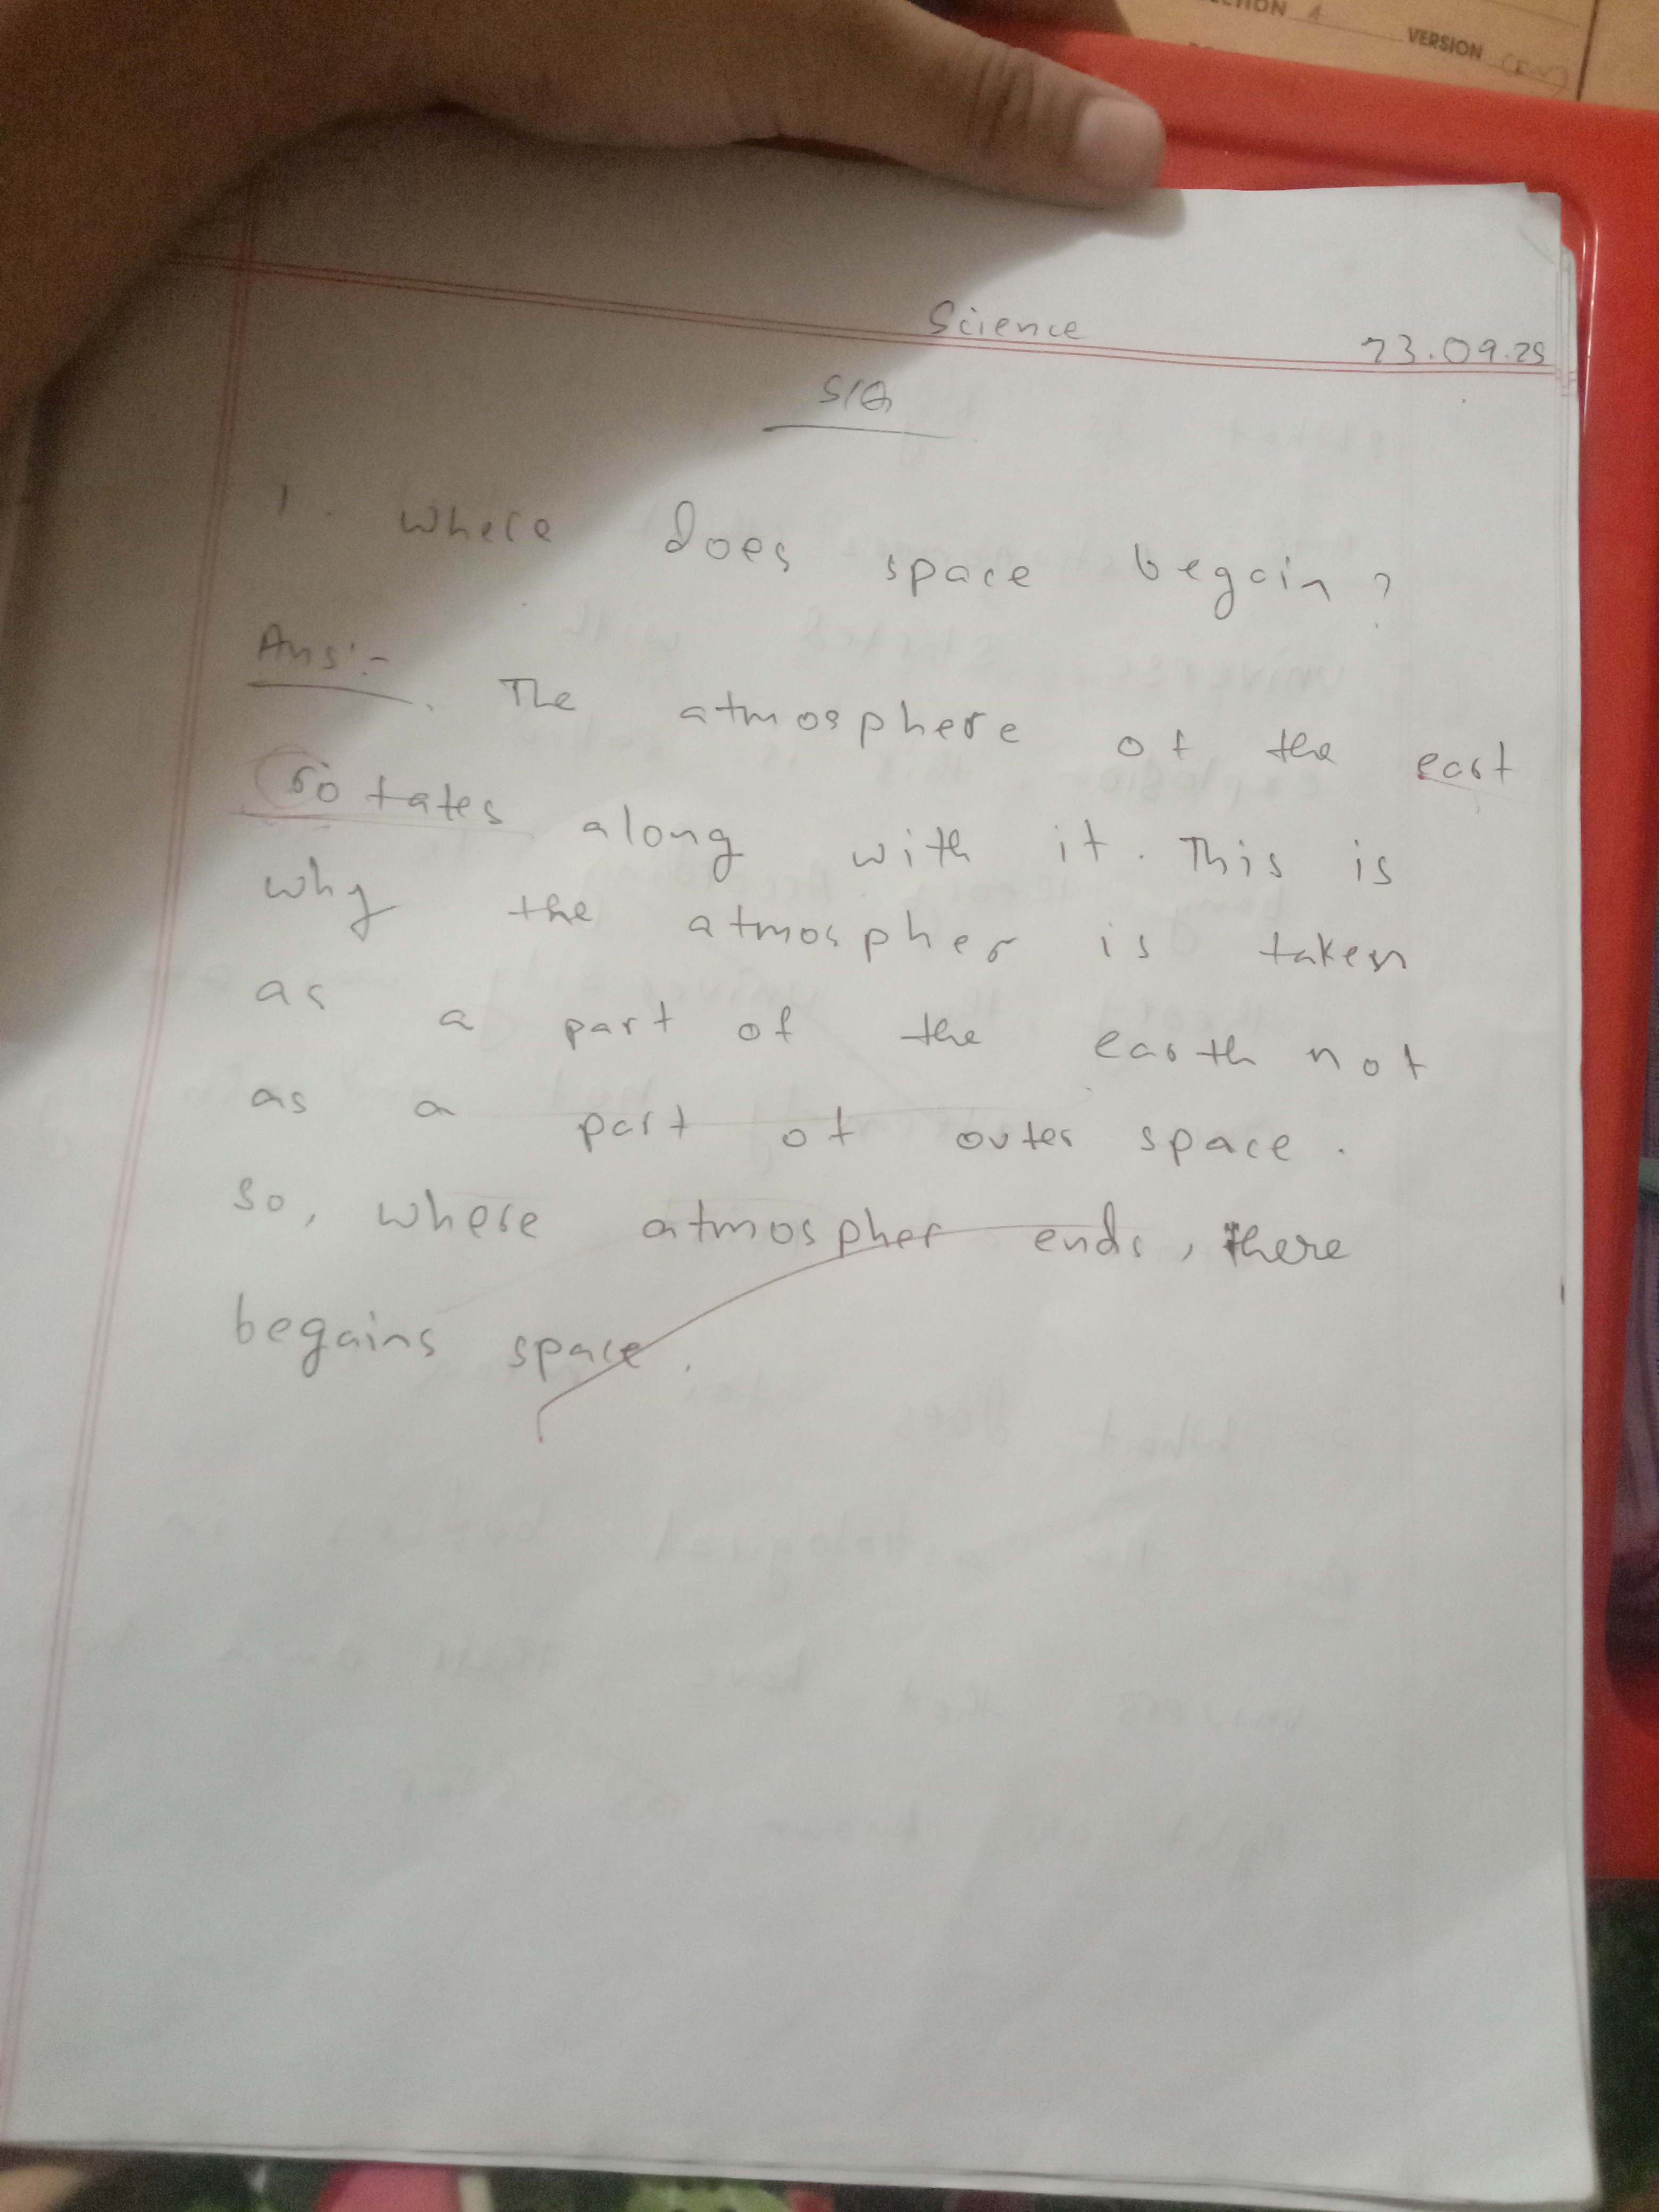 VERSION
Science
23.09.25
S/Q
1. Where does space begain?
Ans:- The atmosphere of the eart
rotates along with it. This is
why the atmospher is taken
as a part of the earth not
as a part of outer space.
So, where atmospher ends, there
begains space.